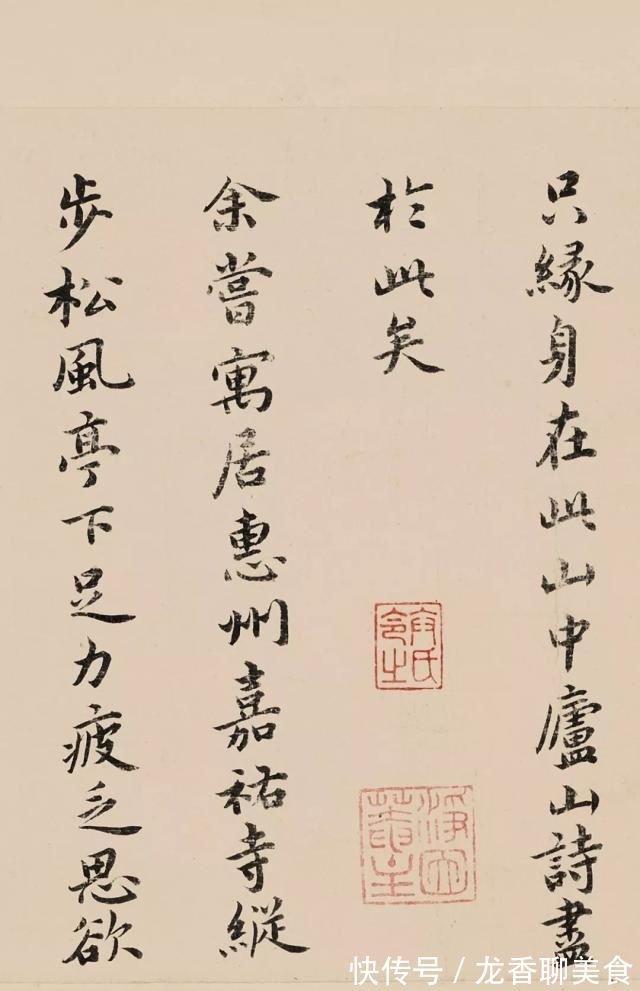 只縁身在此山中廬山詩盡
於此矣
余嘗寓居惠州嘉祐寺縱
步松風亭下足力疲乏思欲
快传号/龙香聊美食